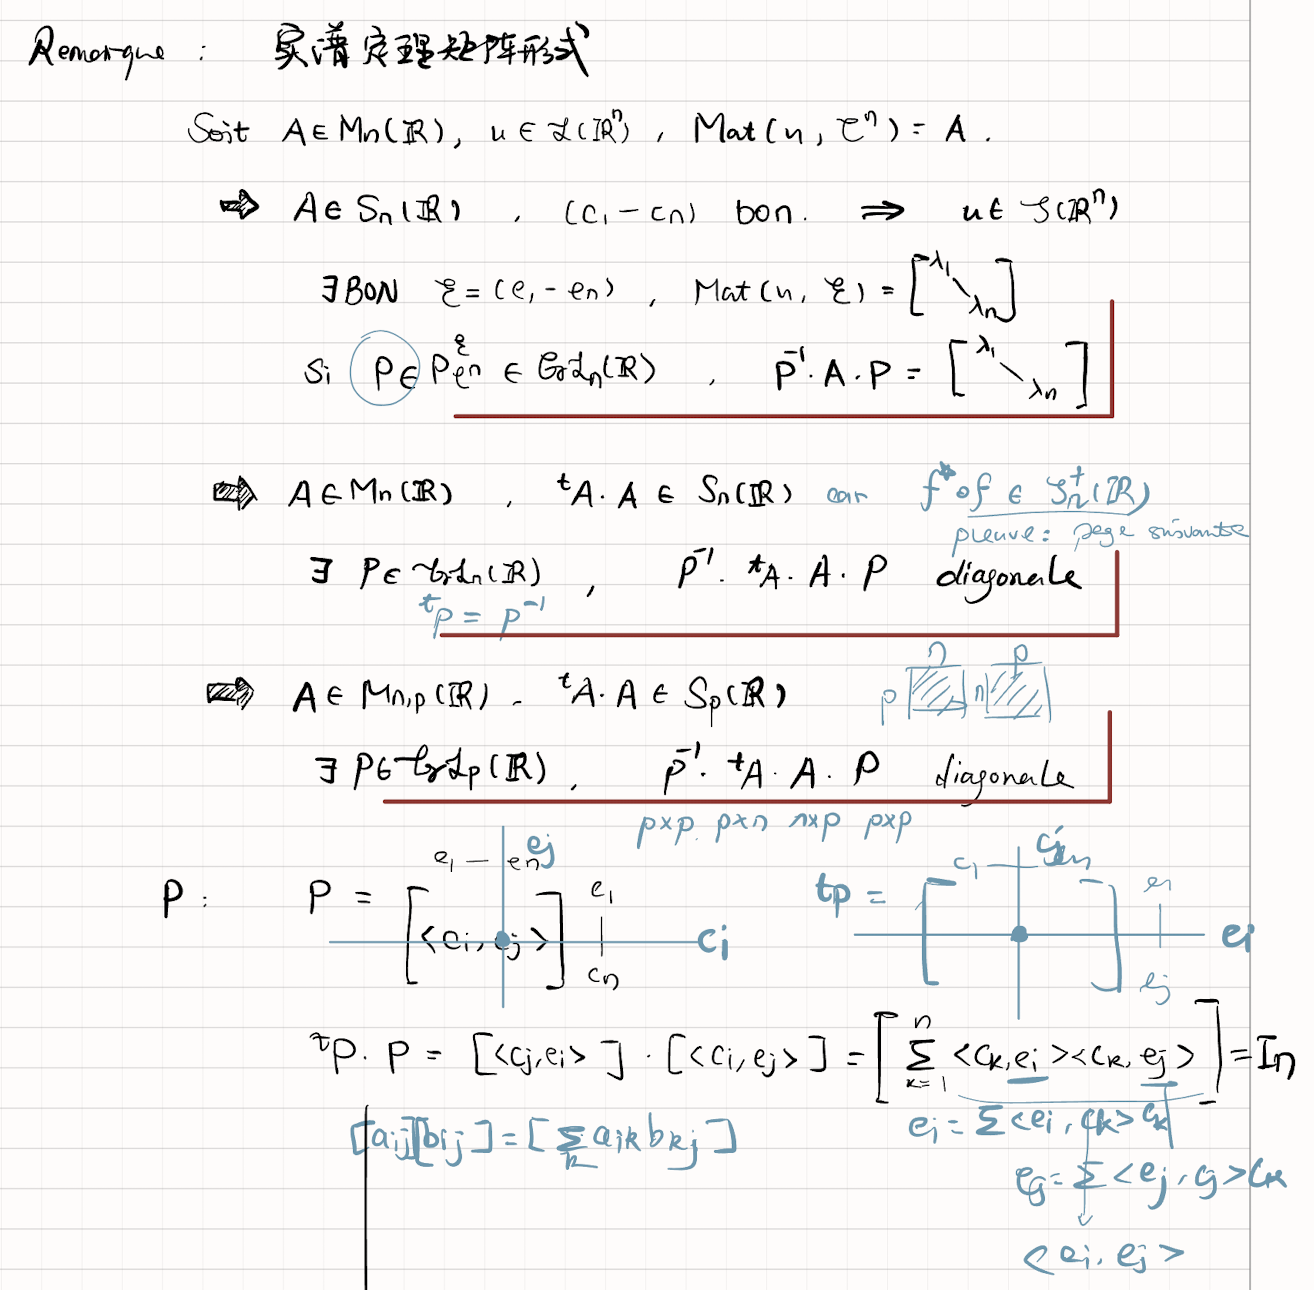 Remarque : 实谱定理矩阵形式
Soit A ∈ Mn(ℝ), u ∈ ℒ(ℝⁿ), Mat(u, ℭⁿ) = A.
⇒ A ∈ Sn(ℝ), (c₁ – cn) bon. ⇒ u ∈ 𝒮(ℝⁿ)
∃ BON ξ = (e₁ – en), Mat(u, ξ) = [λ₁ \ λn]
Si P ∈ P_{ℭⁿ}^{ξ} ∈ 𝒢ℒn(ℝ), P⁻¹. A. P = [λ₁ \ λn]
⇒ A ∈ Mn(ℝ), ᵗA. A ∈ Sn(ℝ) car f*∘f ∈ 𝒮n⁺(ℝ)
preuve : page suivante
∃ P ∈ 𝒢ℒn(ℝ), P⁻¹. ᵗA. A. P diagonale
ᵗP = P⁻¹
⇒ A ∈ Mn,p(ℝ) – ᵗA. A ∈ Sp(ℝ) n p p n
∃ P ∈ 𝒢ℒp(ℝ), P⁻¹. ᵗA. A. P diagonale
p×p. p×n n×p p×p
e₁ – en ej c₁ – cj
P : P = [<ci, ej>] e₁ | cn ci tp = [ ] e₁ | ej ei
ᵗP. P = [<cj, ei>] . [<ci, ej>] = [∑_{k=1}^{n} <ck, ei><ck, ej>] = In
[aij][bij] = [∑_k aik bkj] ei = ∑<ei, ck>ck
ej = ∑<ej, cj>ck
<ei, ej>